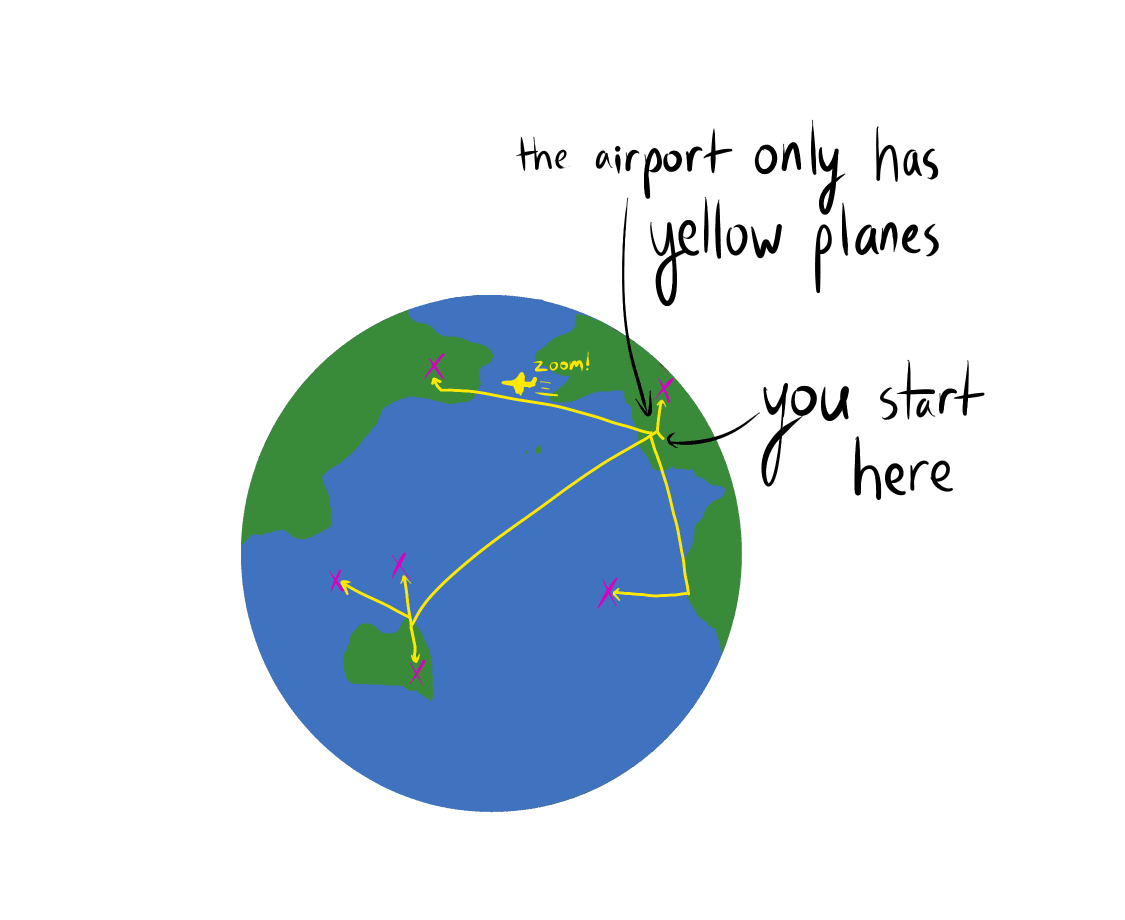 the airport only has
yellow planes
zoom!
you start
here